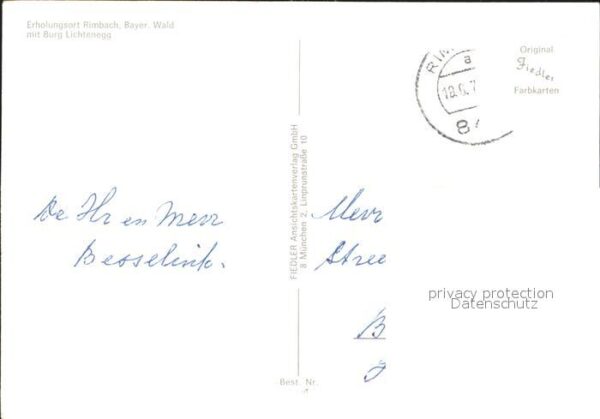 Erholungsort Rimbach, Bayer. Wald
mit Burg Lichtenegg
RIM
a
18.6.7
84
Original
Fiedler
Farbkarten
FIEDLER Ansichtskartenverlag GmbH
8 München 2, Linprunstraße 10
De Hr en Mevr
Besselink.
Mevr
Stree
B
privacy protection
Datenschutz
Best. Nr.